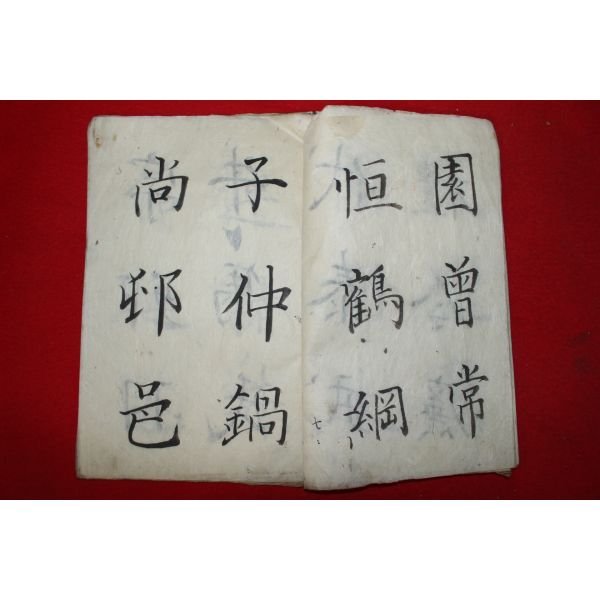 園曽常
恒鶴綱
七
子仲鍋
尚邨邑